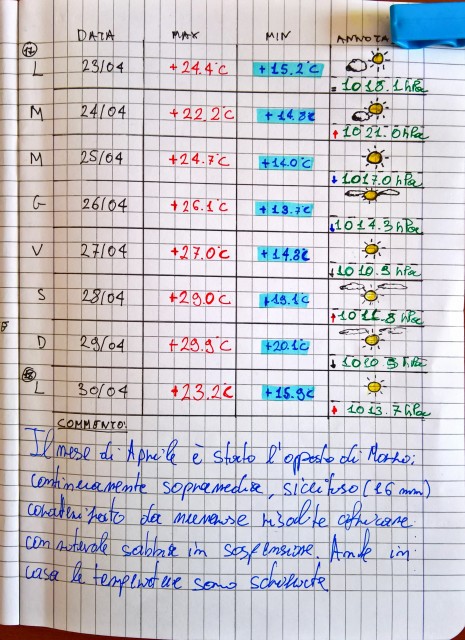 DATA MAX MIN ANNOTA
17
L 23/04 +24.4°C +15.2°C = 1018.1 hPa
M 24/04 +22.2°C +14.8°C ↑ 1021.0 hPa
M 25/04 +24.7°C +14.0°C ↓ 1017.0 hPa
G 26/04 +26.1°C +13.7°C ↓ 1014.3 hPa
V 27/04 +27.0°C +14.8°C ↓ 1010.8 hPa
S 28/04 +29.0°C +19.1°C ↑ 1011.8 hPa
D 29/04 +29.9°C +20.1°C ↓ 1010.9 hPa
18
L 30/04 +23.2°C +15.9°C 1013.7 hPa
COMMENTO:
Il mese di Aprile è stato l'opposto di Marzo:
continuamente sopramedia, siccitoso (16 mm)
caratterizzato da numerose risalite africane
con notevole sabbia in sospensione. Anche in
casa le temperature sono schizzate